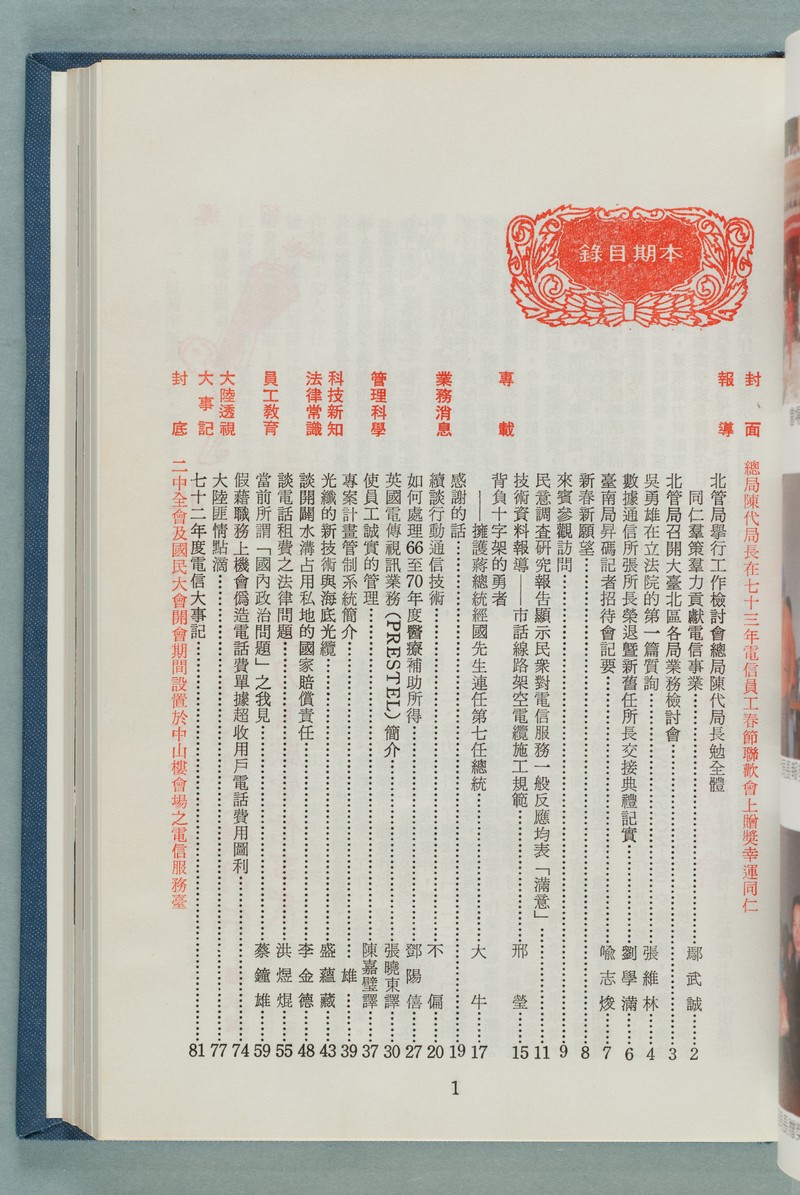 本期目錄
封面 總局陳代局長在七十三年電信員工春節聯歡會上贈獎幸運同仁
報導 北管局舉行工作檢討會總局陳代局長勉全體
同仁羣策羣力貢獻電信事業……鄢武誠……2
北管局召開大臺北區各局業務檢討會……3
吳勇雄在立法院的第一篇質詢……張維林……4
數據通信所張所長榮退暨新舊任所長交接典禮記實……劉學滿……6
臺南局昇碼記者招待會記要……喩志焌……7
新春新願望……8
來賓參觀訪問……9
民意調查研究報告顯示民衆對電信服務一般反應均表「滿意」……11
技術資料報導——市話線路架空電纜施工規範……邢瑩……15
專載 背負十字架的勇者
——擁護蔣總統經國先生連任第七任總統……大牛……17
感謝的話……19
業務消息 續談行動通信技術……不偏……20
如何處理66至70年度醫療補助所得……鄧陽僖……27
英國電傳視訊業務(PRESTEL)簡介……張曉東譯……30
管理科學 使員工誠實的管理……陳嘉璧譯……37
專案計畫管制系統簡介……雄……39
科技新知 光纖的新技術與海底光纜……盛蘊藏……43
法律常識 談開闢水溝占用私地的國家賠償責任……李金德……48
談電話租費之法律問題……洪煜焜……55
員工教育 當前所謂「國內政治問題」之我見……蔡鐘雄……59
假藉職務上機會僞造電話費單據超收用戶電話費用圖利……74
大陸透視 大陸匪情點滴……77
大事記 七十二年度電信大事記……81
封底 二中全會及國民大會開會期間設置於中山樓會場之電信服務臺
1